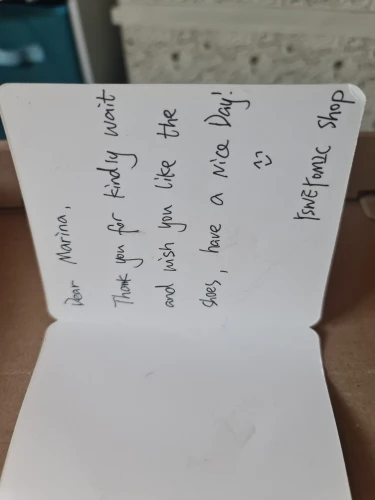 Dear Marina,
Thank you for kindly wait
and wish you like the
shoes, have a nice Day!
:)
shop